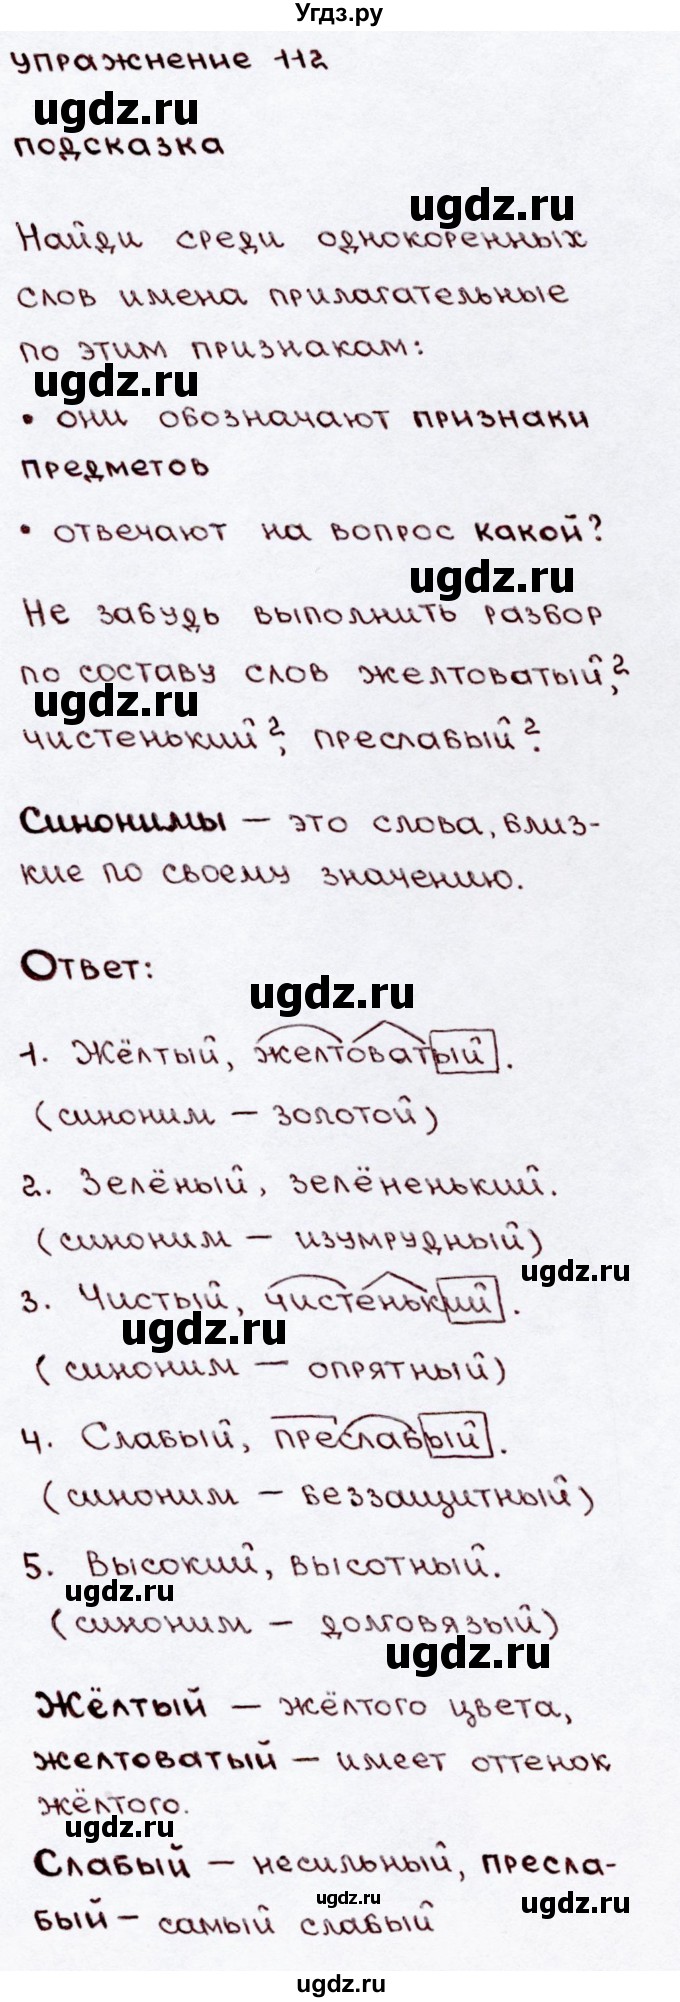 Угдз.ру
упражнение 112
ugdz.ru
подсказка
ugdz.ru
Найди среди однокоренных
слов имена прилагательные
по этим признакам:
ugdz.ru
• они обозначают признаки
предметов
• отвечают на вопрос какой?
ugdz.ru
Не забудь выполнить разбор
по составу слов желтоватый²,
ugdz.ru
чистенький², преслабый².
Синонимы – это слова, близ-
кие по своему значению.
Ответ:
ugdz.ru
1. Жёлтый, желтоватый.
(синоним – золотой)
2. Зелёный, зелёненький.
(синоним – изумрудный)
ugdz.ru
3. Чистый, чистенький.
ugdz.ru
(синоним – опрятный)
4. Слабый, преслабый.
(синоним – беззащитный)
5. Высокий, высотный.
ugdz.ru
(синоним – долговязый)
ugdz.ru
Жёлтый – жёлтого цвета,
желтоватый – имеет оттенок
жёлтого.
ugdz.ru
Слабый – несильный, пресла-
ugdz.ru
ugdz.ru
бый – самый слабый
ugdz.ru